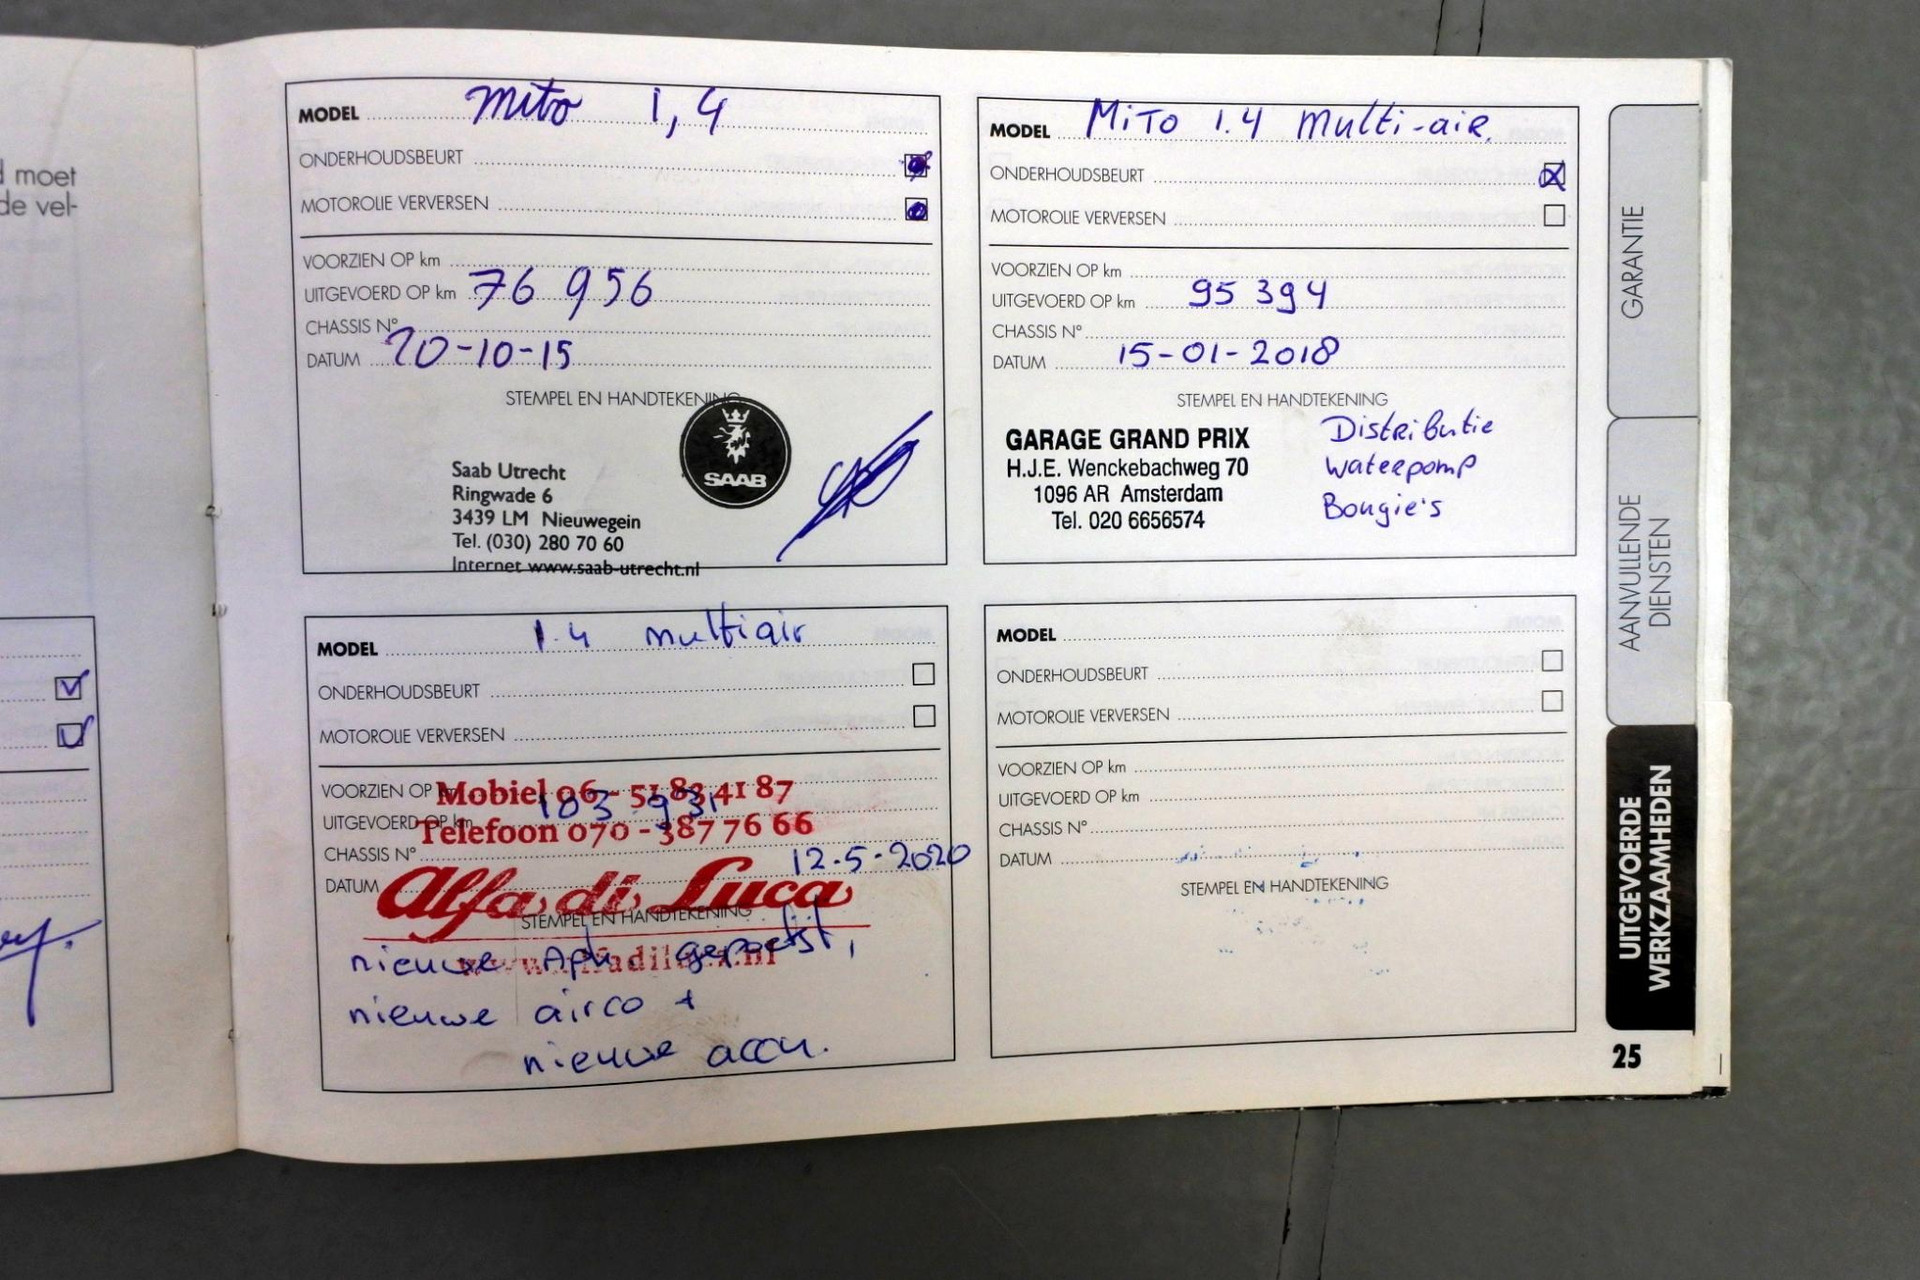 d moet
de vel-
MODEL mito 1,4
ONDERHOUDSBEURT
MOTOROLIE VERVERSEN
VOORZIEN OP km
UITGEVOERD OP km 76 956
CHASSIS N°
DATUM 20-10-15
STEMPEL EN HANDTEKENING
SAAB
Saab Utrecht
Ringwade 6
3439 LM Nieuwegein
Tel. (030) 280 70 60
Internet www.saab-utrecht.nl
MODEL MiTO 1.4 Multi-air.
ONDERHOUDSBEURT
MOTOROLIE VERVERSEN
VOORZIEN OP km
UITGEVOERD OP km 95 394
CHASSIS N°
DATUM 15-01-2018
STEMPEL EN HANDTEKENING
GARAGE GRAND PRIX
H.J.E. Wenckebachweg 70
1096 AR Amsterdam
Tel. 020 6656574
Distributie
waterpomp
Bougie's
MODEL 1.4 multiair
ONDERHOUDSBEURT
MOTOROLIE VERVERSEN
VOORZIEN OP km
Mobiel 06 - 51 83 41 87
UITGEVOERD OP km 103.931
Telefoon 070 - 387 76 66
CHASSIS N°
12.5.2020
DATUM
Alfa di Luca
STEMPEL EN HANDTEKENING
www.alfadiluca.nl
nieuwe Apk
nieuwe airco +
nieuwe accu.
MODEL
ONDERHOUDSBEURT
MOTOROLIE VERVERSEN
VOORZIEN OP km
UITGEVOERD OP km
CHASSIS N°
DATUM
STEMPEL EN HANDTEKENING
GARANTIE
AANVULLENDE
DIENSTEN
UITGEVOERDE
WERKZAAMHEDEN
25